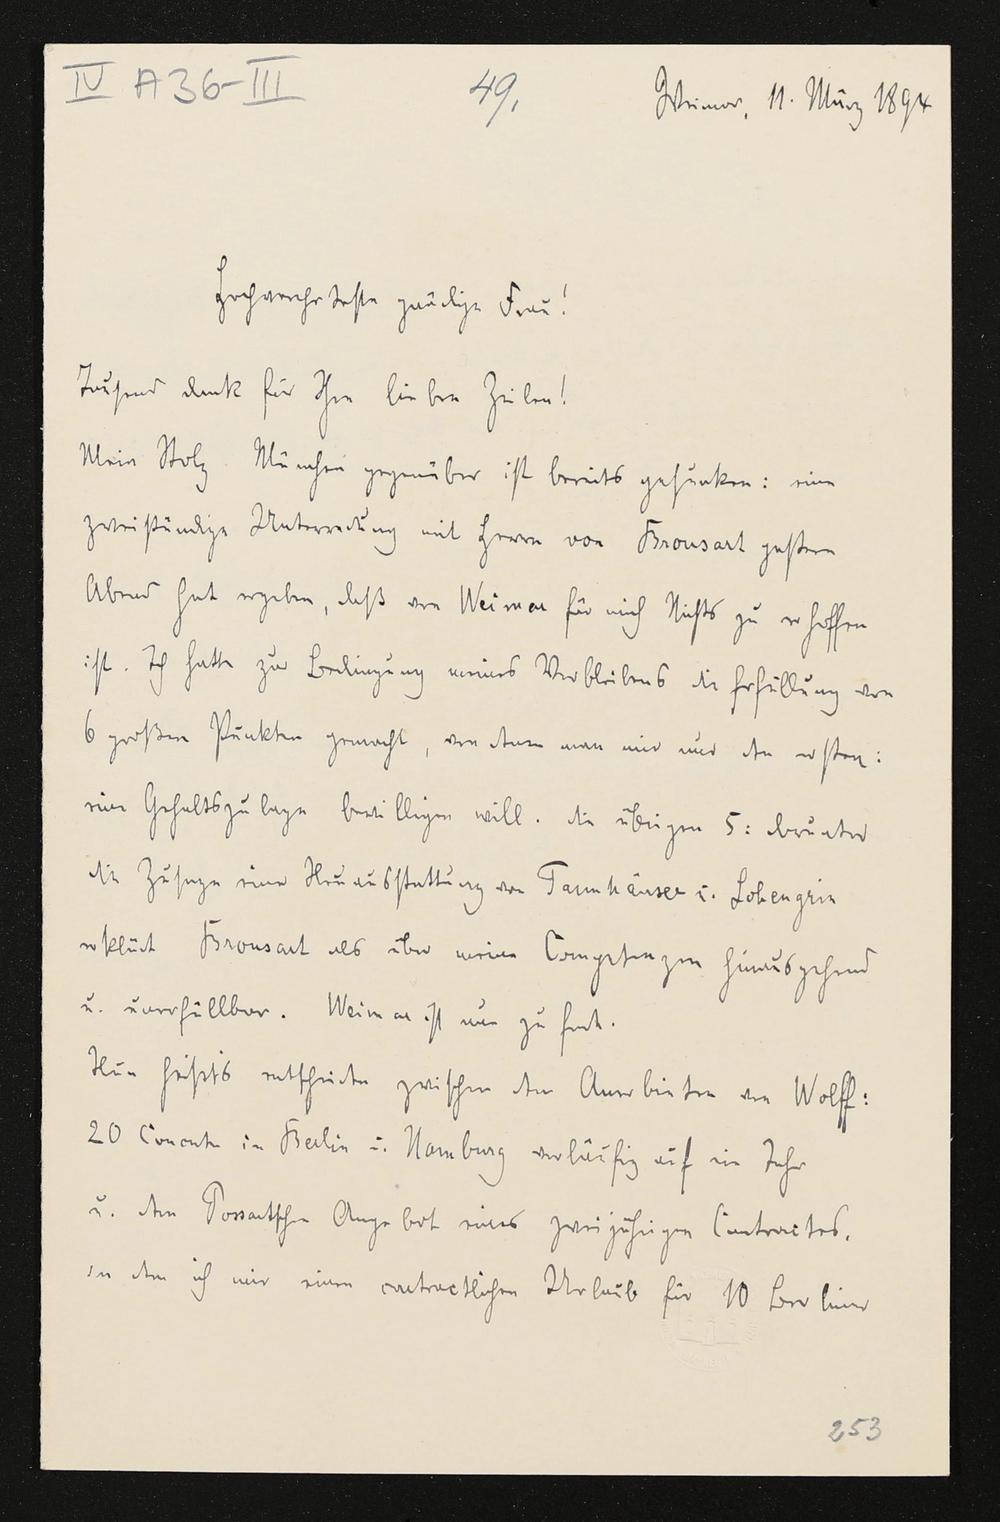 IV A 36-III
49.
Weimar, 11. März 1894
Hochverehrteste gnädige Frau!
Tausend Dank für Ihre lieben Zeilen!
Mein Stolz München gegenüber ist bereits gesunken: eine
zweistündige Unterredung mit Herrn von Bronsart gestern
Abend hat ergeben, daß von Weimar für mich Nichts zu erhoffen
ist. Ich hatte zur Bedingung meines Verbleibens die Erfüllung von
6 großen Punkten gemacht, von denen man mir nur den ersten:
eine Gehaltszulage bewilligen will. Die übrigen 5: darunter
die Zusage einer Neuausstattung von Tannhäuser u. Lohengrin
erklärt Bronsart als über meine Competenzen hinausgehend
u. unerfüllbar. Weimar ist nun zu Ende.
Nun heißt's entscheiden zwischen den Anerbieten von Wolff:
20 Concerte in Berlin u. Hamburg vorläufig auf ein Jahr
u. dem Possartschen Angebot eines zweijährigen Contractes,
in dem ich mir einen contractlichen Urlaub für 10 Berliner
253